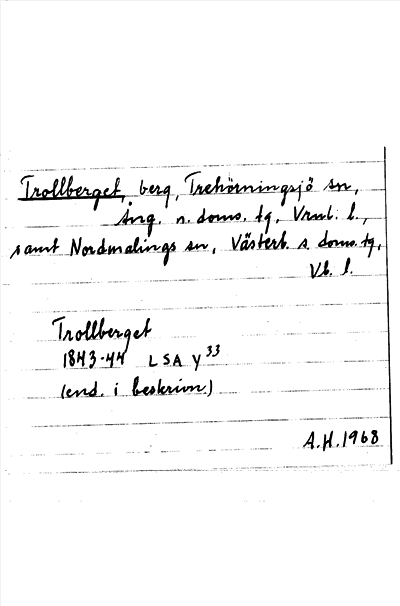 Trollberget, berg, Trehörningsjö sn,
Ång. n. doms. tg, Vrnl. l.,
samt Nordmalings sn, Västerb. s. doms. tg,
Vb. l.
Trollberget
1843-44 LSA Y 33
(end. i beskrivn.)
A.H. 1968